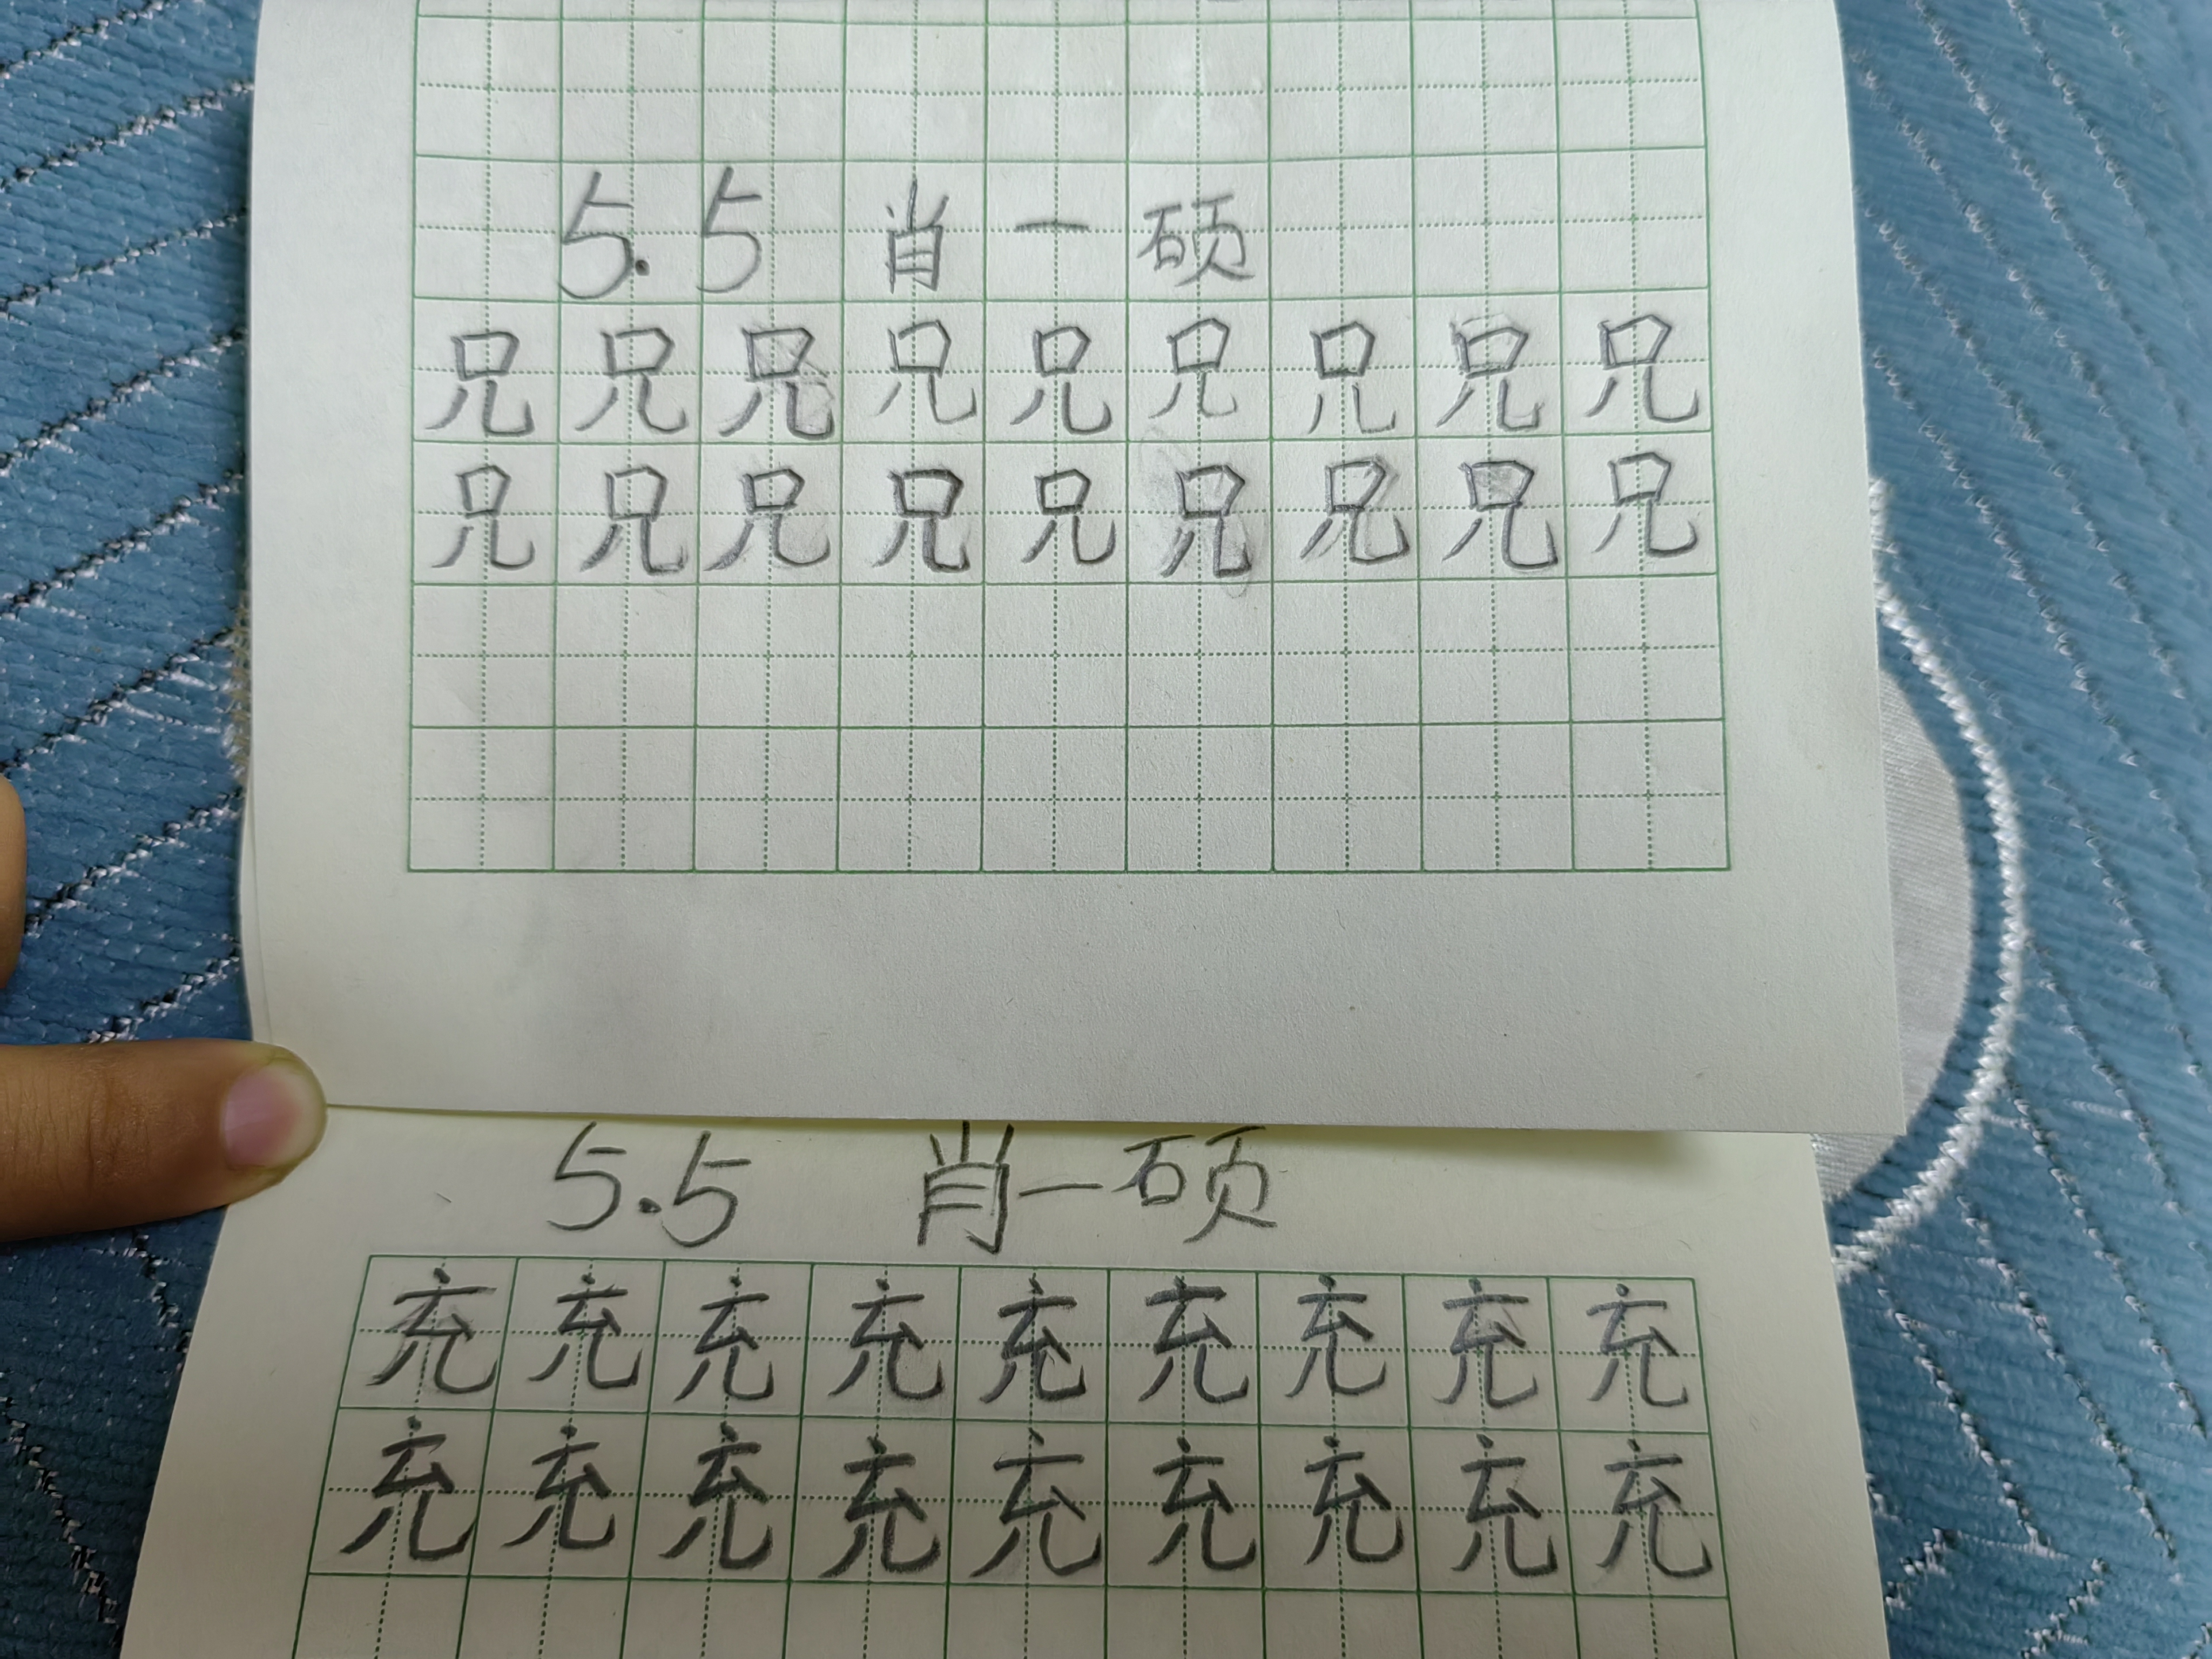 5.5 肖一硕
兄兄兄兄兄兄兄兄兄
兄兄兄兄兄兄兄兄兄
5.5 肖一硕
充充充充充充充充充
充充充充充充充充充